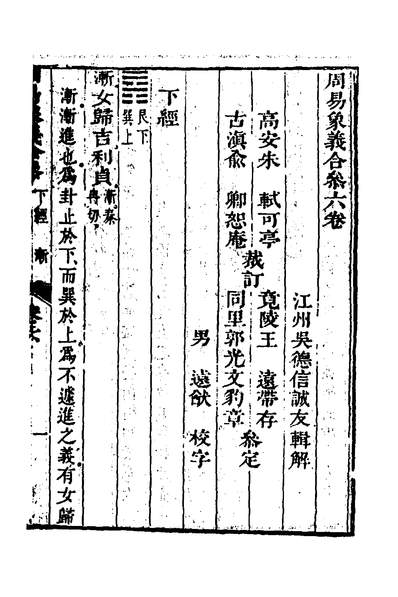 周易象義合參六卷
江州吳德信誠友輯解
高安朱　軾可亭
古滇兪　卿恕庵
裁訂
竟陵王　遠帶存
同里郭光文豹章
叅定
男　遠猷　校字
下經
艮下
巽上
漸女歸吉利貞
漸秦
冉切
漸漸進也爲卦止於下而巽於上爲不遽進之義有女歸
下經　漸
一